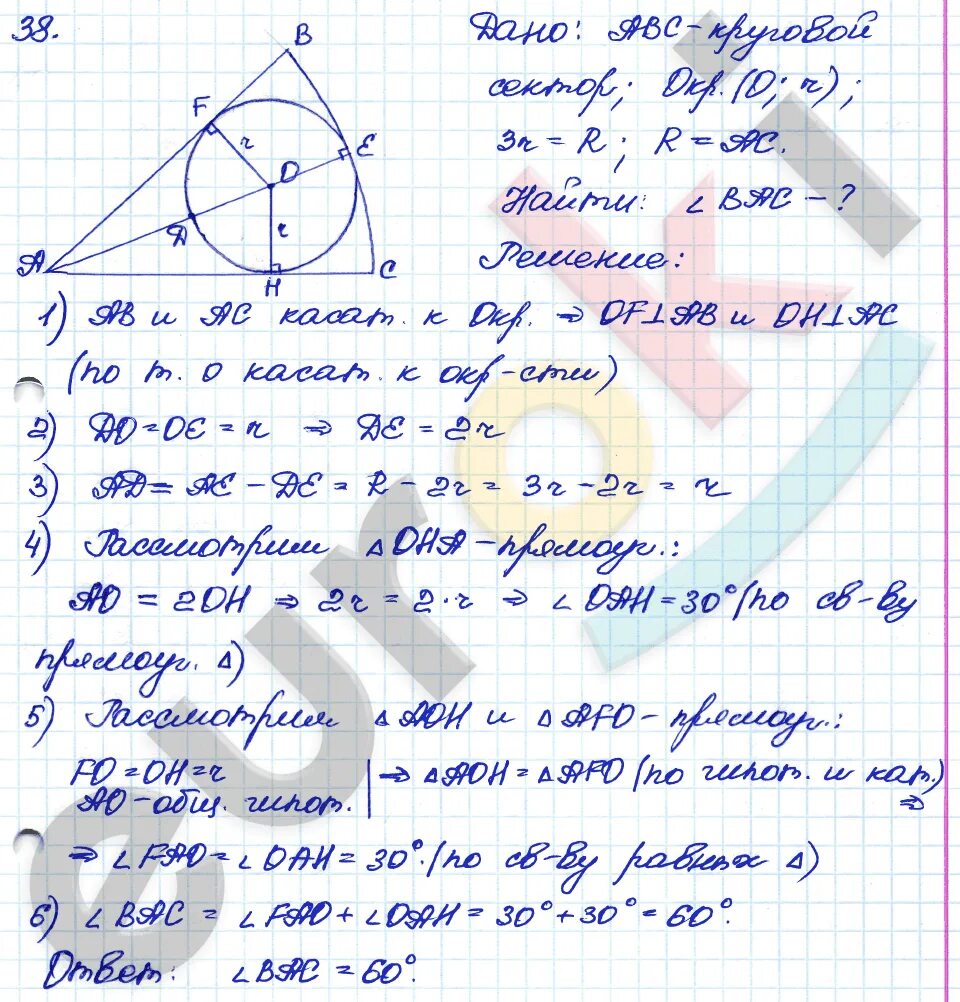 38.
B
F
r
O
E
D
r
A
H
C
Дано: ABC-круговой
сектор; Окр.(O; r);
3r = R; R = AC.
Найти: ∠BAC - ?
Решение:
1) AB и AC касат. к Окр. ⇒ OF⊥AB и OH⊥AC
(по т. о касат. к окр-сти)
2) DO = OE = r ⇒ DE = 2r
3) AD = AE - DE = R - 2r = 3r - 2r = r
4) Рассмотрим △OHA-прямоуг.:
AO = 2OH ⇒ 2r = 2·r ⇒ ∠OAH = 30° (по св-ву
прямоуг. △)
5) Рассмотрим △AOH и △AFO - прямоуг.:
FO = OH = r | ⇒ △AOH = △AFO (по гипот. и кат.)
AO - общ. гипот. | ⇒
⇒ ∠FAO = ∠OAH = 30°. (по св-ву равных △)
6) ∠BAC = ∠FAO + ∠OAH = 30° + 30° = 60°.
Ответ: ∠BAC = 60°.
euroki